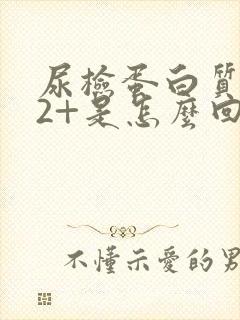 尿檢蛋白質
2+是怎麼回
不懂示愛的男